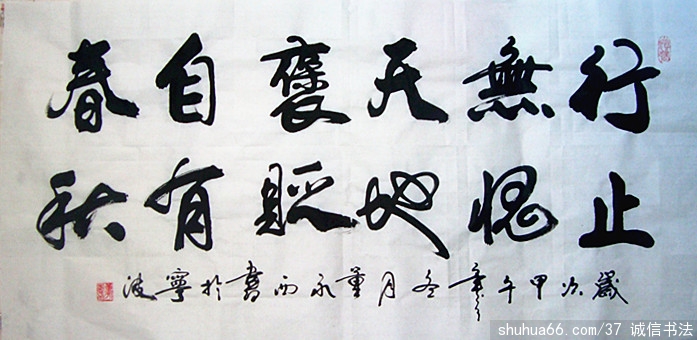 行止
無愧
天地
褒貶
自有
春秋
歲次甲午年冬月董永西書於寧波
shuhua66.com/37 诚信书法